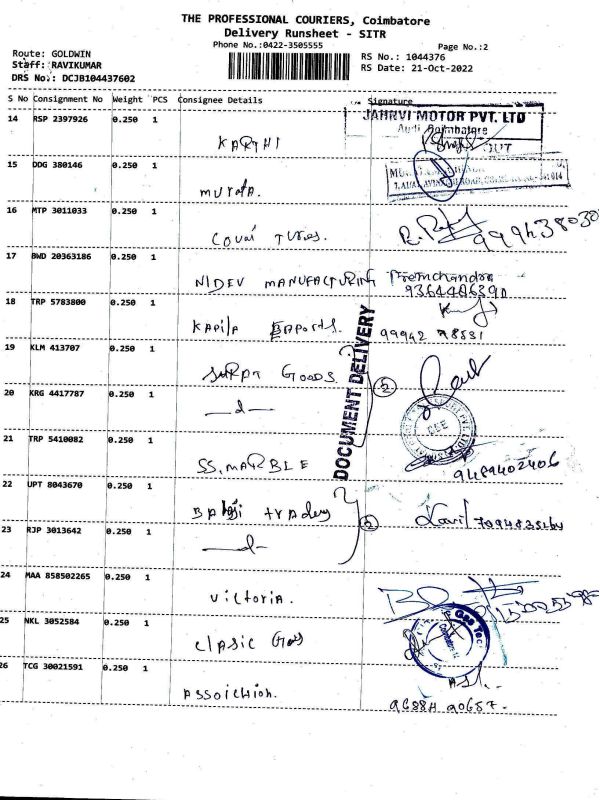 THE PROFESSIONAL COURIERS, Coimbatore
Delivery Runsheet - SITR
Phone No.:0422-3505555
Page No.:2
Route: GOLDWIN
RS No.: 1044376
Staff: RAVIKUMAR
RS Date: 21-Oct-2022
DRS No.: DCJB104437602
S No Consignment No Weight PCS Consignee Details Signature
14 RSP 2397926 0.250 1
JAHRVI MOTOR PVT. LTD
Audi Coimbatore
OUT
KARTHI
15 DDG 380146 0.250 1
murata.
16 MTP 3011033 0.250 1
Covai Tyres.
17 BWD 20363186 0.250 1
NIDEV MANUFACTURING Premchandra
9364406390
18 TRP 5783800 0.250 1
Kapila Exports. 99942 98531
DOCUMENT DELIVERY
19 KLM 413707 0.250 1
GOODS 2
20 KRG 4417787 0.250 1
—d—
21 TRP 5410082 0.250 1
SS. MARBLE
9489402406
22 UPT 8043670 0.250 1
Balaji traders 2
23 RJP 3013642 0.250 1
—d—
24 MAA 858502265 0.250 1
victoria.
25 NKL 3052584 0.250 1
Gee Tec
clasic
26 TCG 30021591 0.250 1
Assoichion.